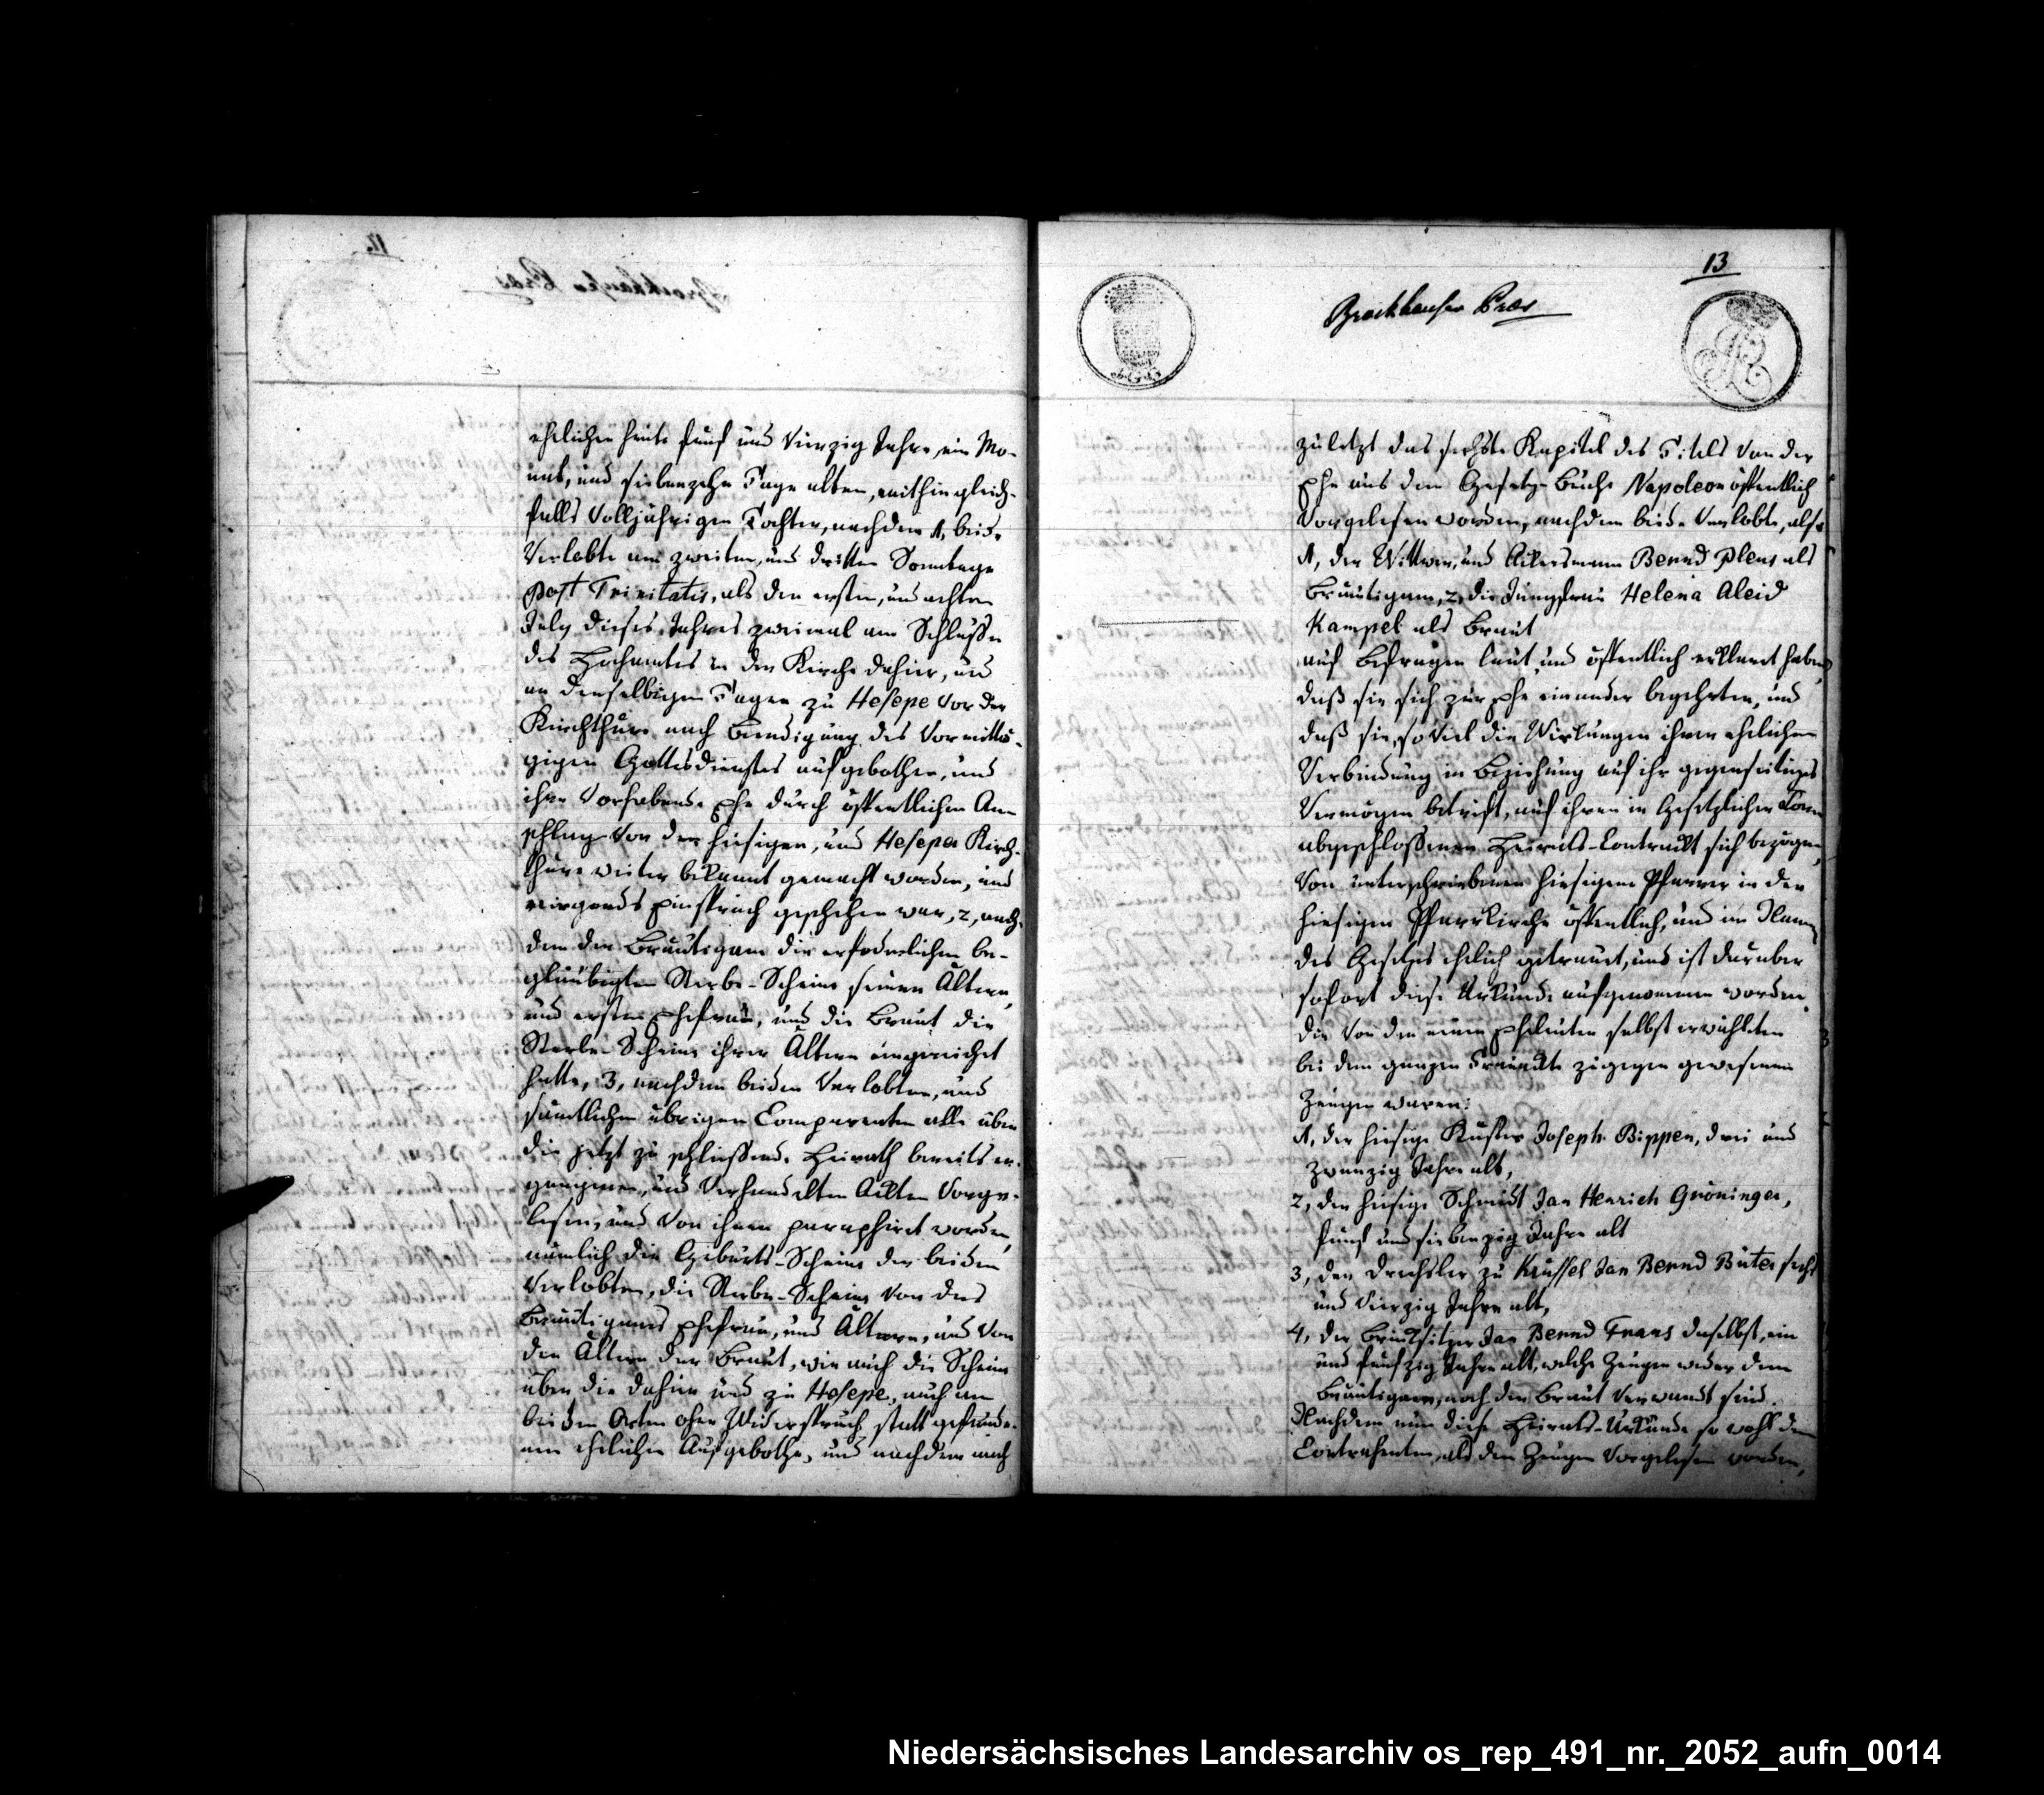 ehelichen heute fünf und vierzig Jahre, ein Mo-
nat, und siebenzehn Tage alten, mithin gleich-
falls volljährigen Tochter, nachdem 1, beide
Verlobte am zweiten, und dritten Sonntage
post Trinitatis, als den ersten, und achten
July dieses Jahres zweimal am Schluße
des Hochamtes in der Kirche dahier, und
an denselbigen Tagen zu Hesepe vor der
Kirchthüre nach Beendigung des vormittä-
gigen Gottesdienstes aufgebothen, und
ihre vorhabende Ehe durch öffentlichen An-
schlag vor der hiesigen, und Heseper Kirch-
thüre weiter bekannt gemacht worden, und
nirgends Einspruch geschehen war, 2, nach-
dem der Bräutigam die erfoderlichen be-
gläubigten Sterbe-Scheine seiner Ältern,
und ersten Ehefrau, und die Braut die
Sterbe-Scheine ihrer Ältern eingereichet
hatte, 3, nachdem beiden Verlobten, und
sämtlichen übrigen Comparenten alle über
die jetzt zu schließende Heirath bereits er-
gangenen, und verhandelten Ackten vorge-
lesen, und von ihnen paraphirt worden,
nämlich die Geburts-Scheine der beiden
Verlobten, die Sterbe-Scheine von des
Bräutigams Ehefrau, und Ältern, und von
den Ältern der Braut, wie auch die Scheine
über die dahier und zu Hesepe, auch an
beiden Orten ohne Widerspruch statt gefunde-
nen ehelichen Aufgebothe, und nachdem auch
13
Brockhausen Præs
zuletzt das sechste Kapitel des Titels von der
Ehe aus dem Gesetz-Buche Napoleon öffentlich
vorgelesen worden, nachdem beide Verlobte, als
1, der Wittwer, und Ackersmann Bernd Plens als
Bräutigam, 2, die Jungfrau Helena Aleid
Kampel als Braut
auf Befragen laut und öffentlich erklaert haben,
daß sie sich zur Ehe einander begehrten, und
daß sie, so viel die Wirkungen ihrer ehelichen
Verbindung in Beziehung auf ihr gegenseitiges
Vermögen betrift, auf ihren in gesetzlicher Form
abgeschloßenen Heirats-Contrackt sich bezögen,
von unterschriebenen hiesigem Pfarrer in der
hiesigen Pfarrkirche öffentlich, und im Namen
des Gesetzes ehelich getrauet, und ist darüber
sofort diese Urkunde aufgenommen worden.
Die von den neuen Eheleuten selbst erwählten
bei dem ganzen zugegen gewesenen
Zeugen waren:
1, der hiesige Küster Joseph Bippen, drei und
zwanzig Jahre alt,
2, der hiesige Schmidt Jan Henrich Gröninger,
fünf und siebenzig Jahre alt
3, der Drechsler zu Kussel Jan Bernd Büter sechs
und vierzig Jahre alt,
4, der Brinksitzer Jan Bernd Frans daselbst, ein
und fünfzig Jahre alt, welche Zeugen weder dem
Bräutigam, noch der Braut verwandt sind.
Nachdem nun diese Heirats-Urkunde so wohl den
Contrahenten, als den Zeugen vorgelesen worden,
Niedersächsisches Landesarchiv os_rep_491_nr._2052_aufn_0014